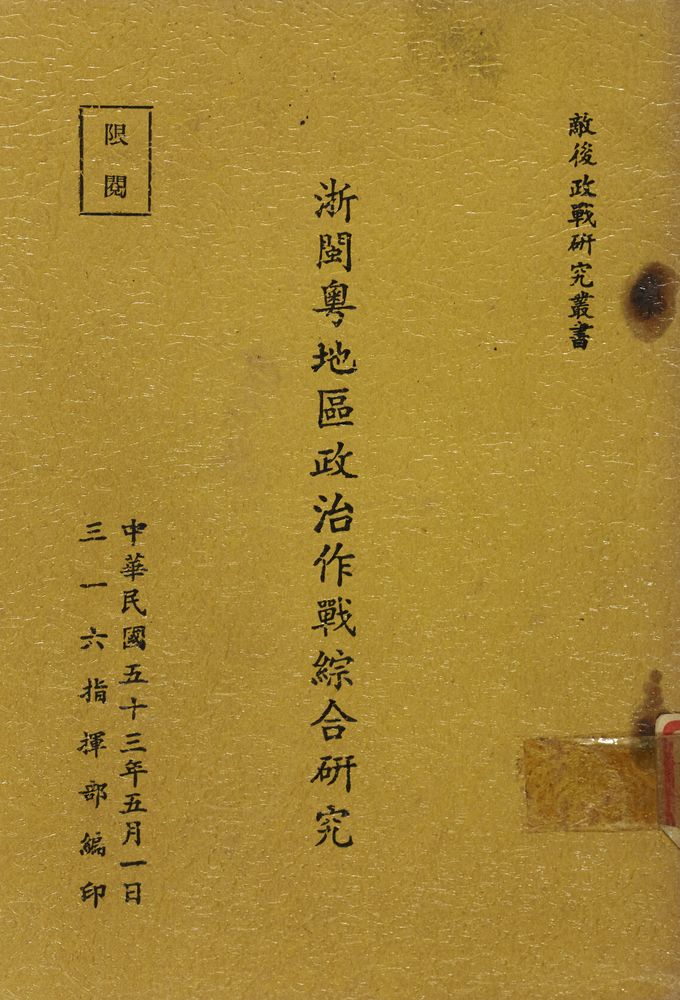 敵後政戰研究叢書
浙閩粵地區政治作戰綜合研究
限閱
中華民國五十三年五月一日
三一六指揮部編印